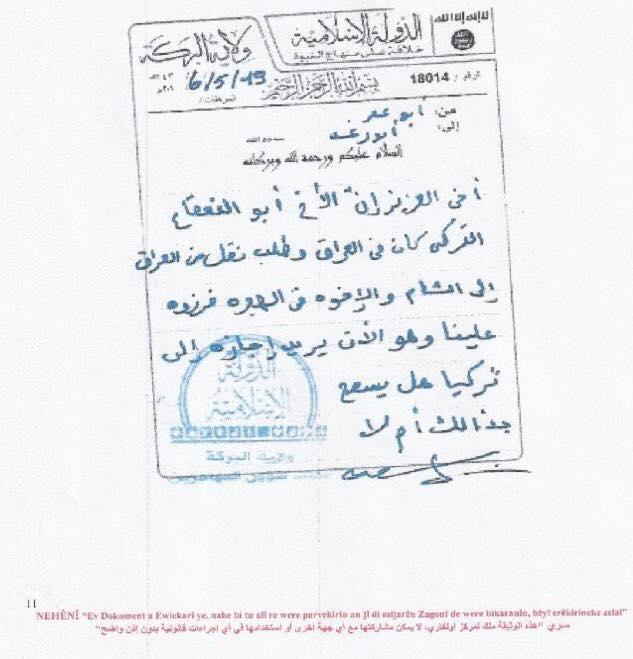 لا إله إلا الله
الله رسول محمد
الدولة الإسلامية
خلافة على منهاج النبوة
ولاية البركة
الرقم / 18014
بسم الله الرحمن الرحيم
16/5/19
المرفقات /
من: أبو عمر
إلى:
السلام عليكم ورحمة الله وبركاته
أخي العزيز إن الأخ أبو القعقاع
التركي كان في العراق وطلب نقل من العراق
إلى الشام والإخوه في الهجره فرزوه
علينا وهو الآن يريد إجازه إلى
تركيا هل يسمح
بذالك أم لا
الدولة
الإسلامية
ولاية البركة
11
NEHÊNÎ "Ev Dokument a Ewlekarî ye, nabe bi tu alî re were parvekirin an jî di mijarên Zagonî de were bikaranîn, bêyî erêkirineke zelal"
سري "هذه الوثيقة ملك لمركز اولكاري، لا يمكن مشاركتها مع اي جهة اخرى او استخدامها في أي اجراءات قانونية بدون إذن واضح"